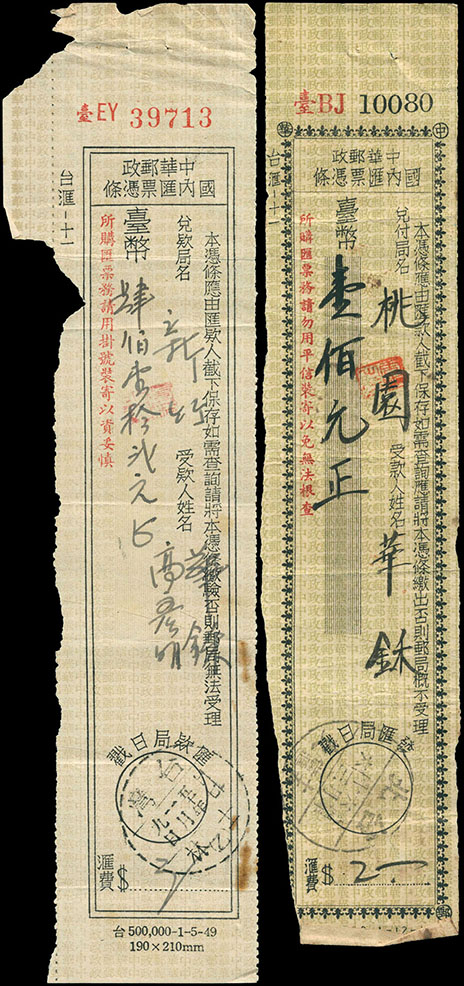 臺EY 39713
台滙-十一
中華郵政
國內滙票憑條
本憑條應由滙款人截下保存如需查詢請將本憑條繳驗否則郵局無法受理
兌款局名
受款人姓名
臺幣
元
所購滙票務請用掛號裝寄以資妥慎
滙款局日戳
滙費 $
台500,000-1-5-49
190×210mm
臺BJ 10080
台滙-十一
中華郵政
國內滙票憑條
本憑條應由滙款人截下保存如需查詢應請將本憑條繳出否則郵局概不受理
兌付局名 桃園 受款人姓名 華銇
臺幣 壹佰元正
所購匯票務請勿用平信裝寄以免無法根查
發滙局日戳
滙費 $ 2一